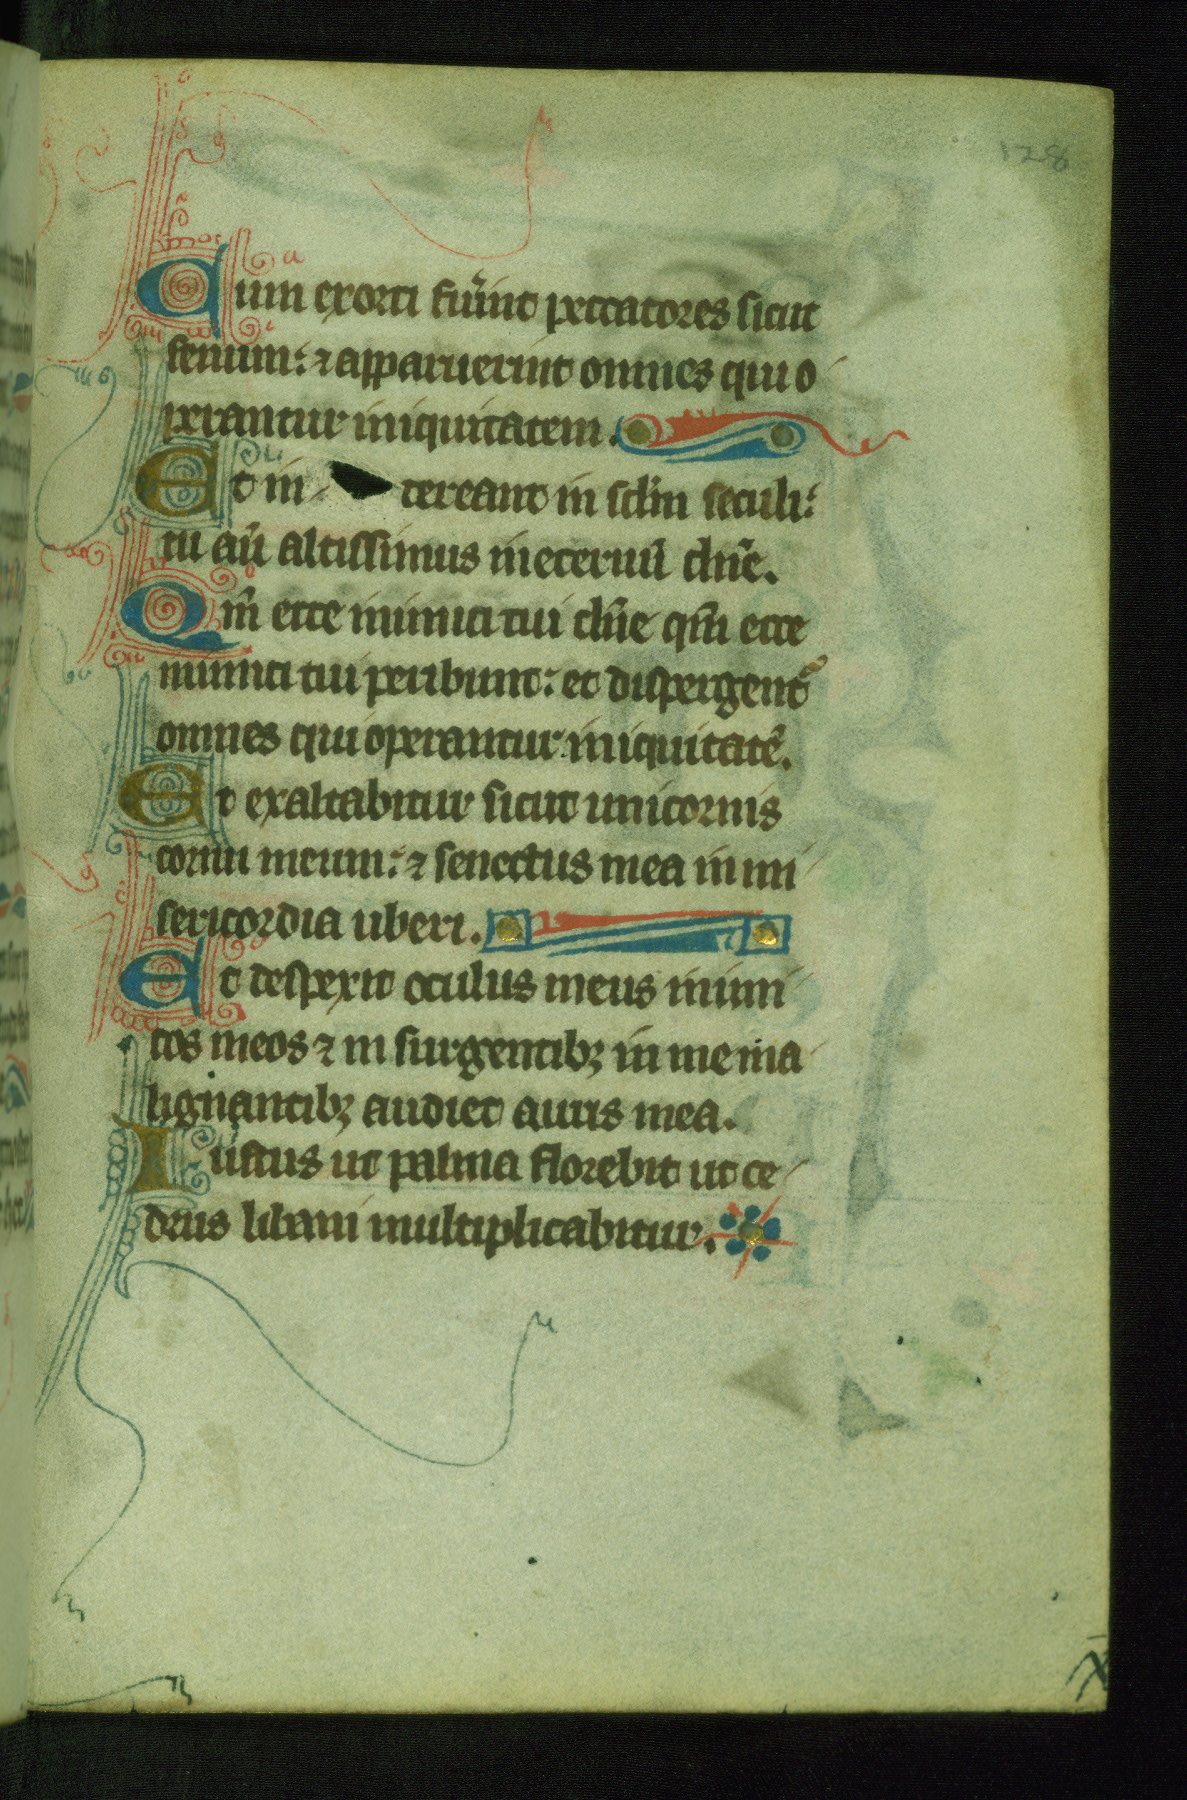 128
Cum exorti fu̾int peccatores sicut
fenum: ⁊ apparuerint omnes qui o
perantur iniquitatem.
Et in tereant in sc̄lm seculi:
tu aū altissimus in eternū dn̄e.
Qm̄ ecce inimici tui dn̄e qm̄ ecce
inimici tui peribunt: et dispergent᷑
omnes qui operantur iniquitatē.
Et exaltabitur sicut unicornis
cornu meum: ⁊ senectus mea in mi
sericordia uberi.
Et despexit oculus meus inimi
cos meos ⁊ in surgentibꝫ in me ma
lignantibꝫ audiet auris mea.
Iustus ut palma florebit ut ce
drus libani multiplicabitur.